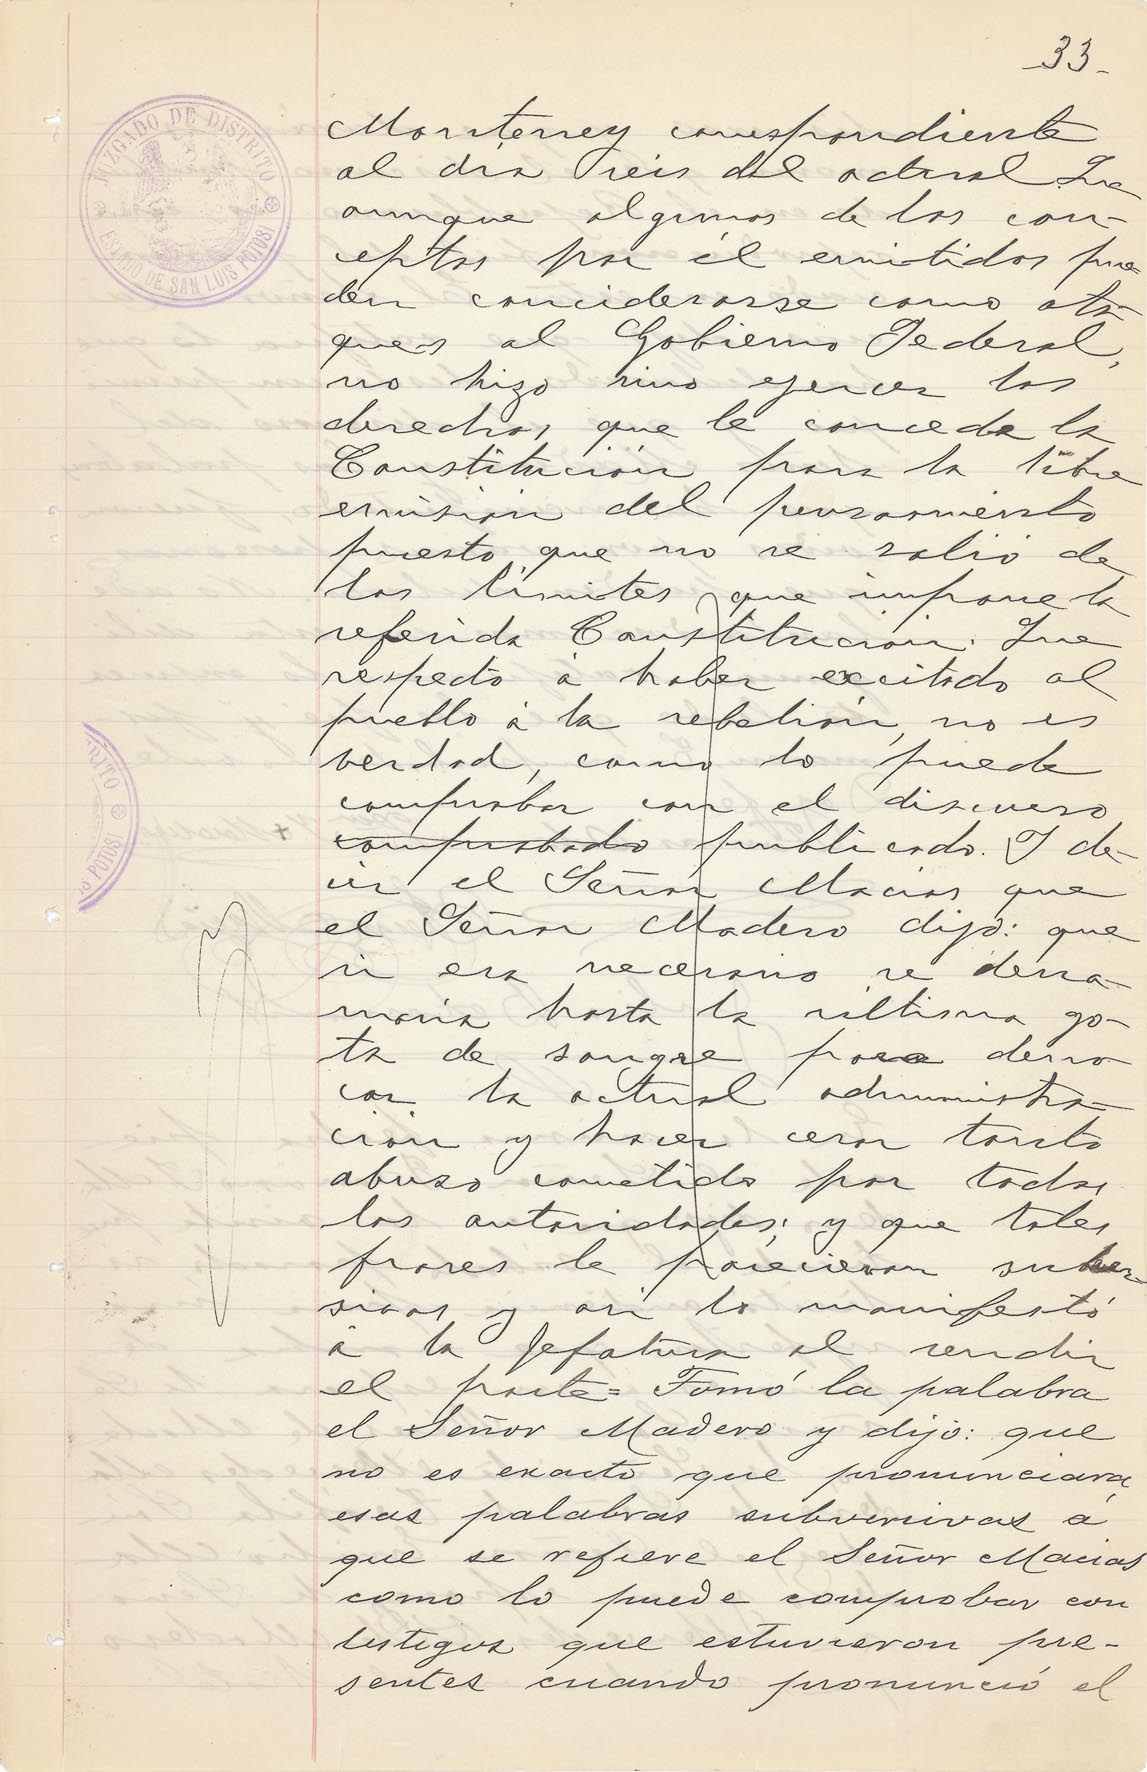 33-
JUZGADO DE DISTRITO
ESTADO DE SAN LUIS POTOSI
Monterrey correspondiente
al día seis del actual. Que
aunque algunos de los con-
ceptos por él emitidos pue-
den conciderarse como ata-
ques al Gobierno Federal,
no hizo sino ejercer los
derechos que le concede la
Constitución para la libre
emisión del pensamiento
puesto que no se salió de
los límites que impone la
referida Constitución. Que
respecto á haber excitado al
pueblo á la rebelión, no es
verdad, como lo puede
comprobar con el discurso
comprobado publicado. I de-
cir el Señor Macias que
el Señor Madero dijo: que
si era necesario se derra-
maría hasta la última go-
ta de sangre para derro-
car la actual administra-
ción y hacer cesar tanto
abuso cometido por todas
las autoridades; y que tales
frases le parecieron subver-
sivas y asi lo manifestó
á la Jefatura al rendir
el parte= Tomó la palabra
el Señor Madero y dijo: que
no es exacto que pronunciara
esas palabras subversivas á
que se refiere el Señor Macias
como lo puede comprobar con
testigos que estuvieron pre-
sentes cuando pronunció el
RITO
POTOSI